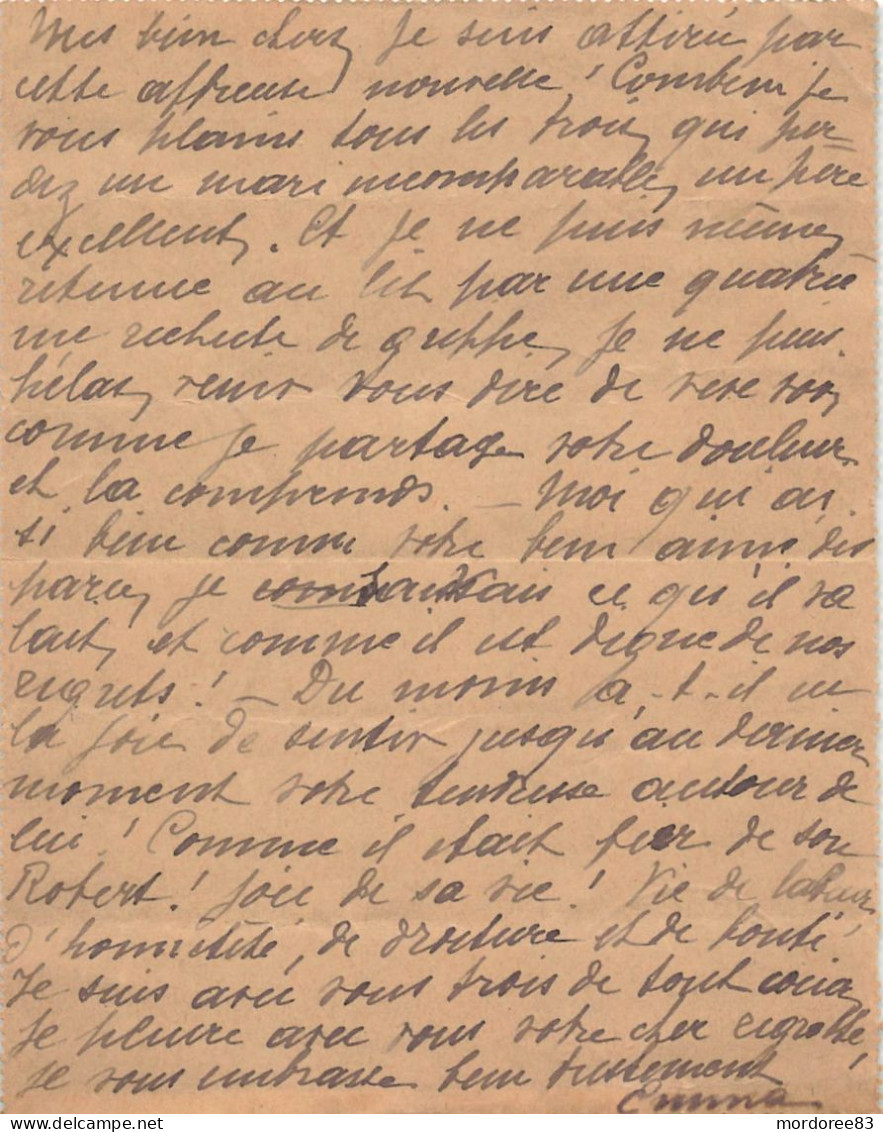 Mes bien chers, Je suis attérée par
cette affreuse nouvelle! Combien je
vous plains tous les trois, qui per=
dez un mari incomparable, un père
excellent. Et je ne puis même,
retenue au lit par une quatriè
me rechute de grippe, je ne puis,
hélas, venir vous dire de vive voix
comme je partage votre douleur
et la comprends. — Moi qui ai
si bien connu votre bien aimé dis
paru, je connaissais ce qu'il va
lait, et comme il est digne de nos
regrets! — Du moins, a-t-il eu
la joie de sentir jusqu'au dernier
moment votre tendresse autour de
lui! Comme il était fier de son
Robert! joie de sa vie! Vie de labeur,
d'honnêteté, de droiture et de bonté
Je suis avec vous trois de tout coeur,
Je pleure avec vous votre cher regretté,
Je vous embrasse bien tristement
Emma
mordoree83